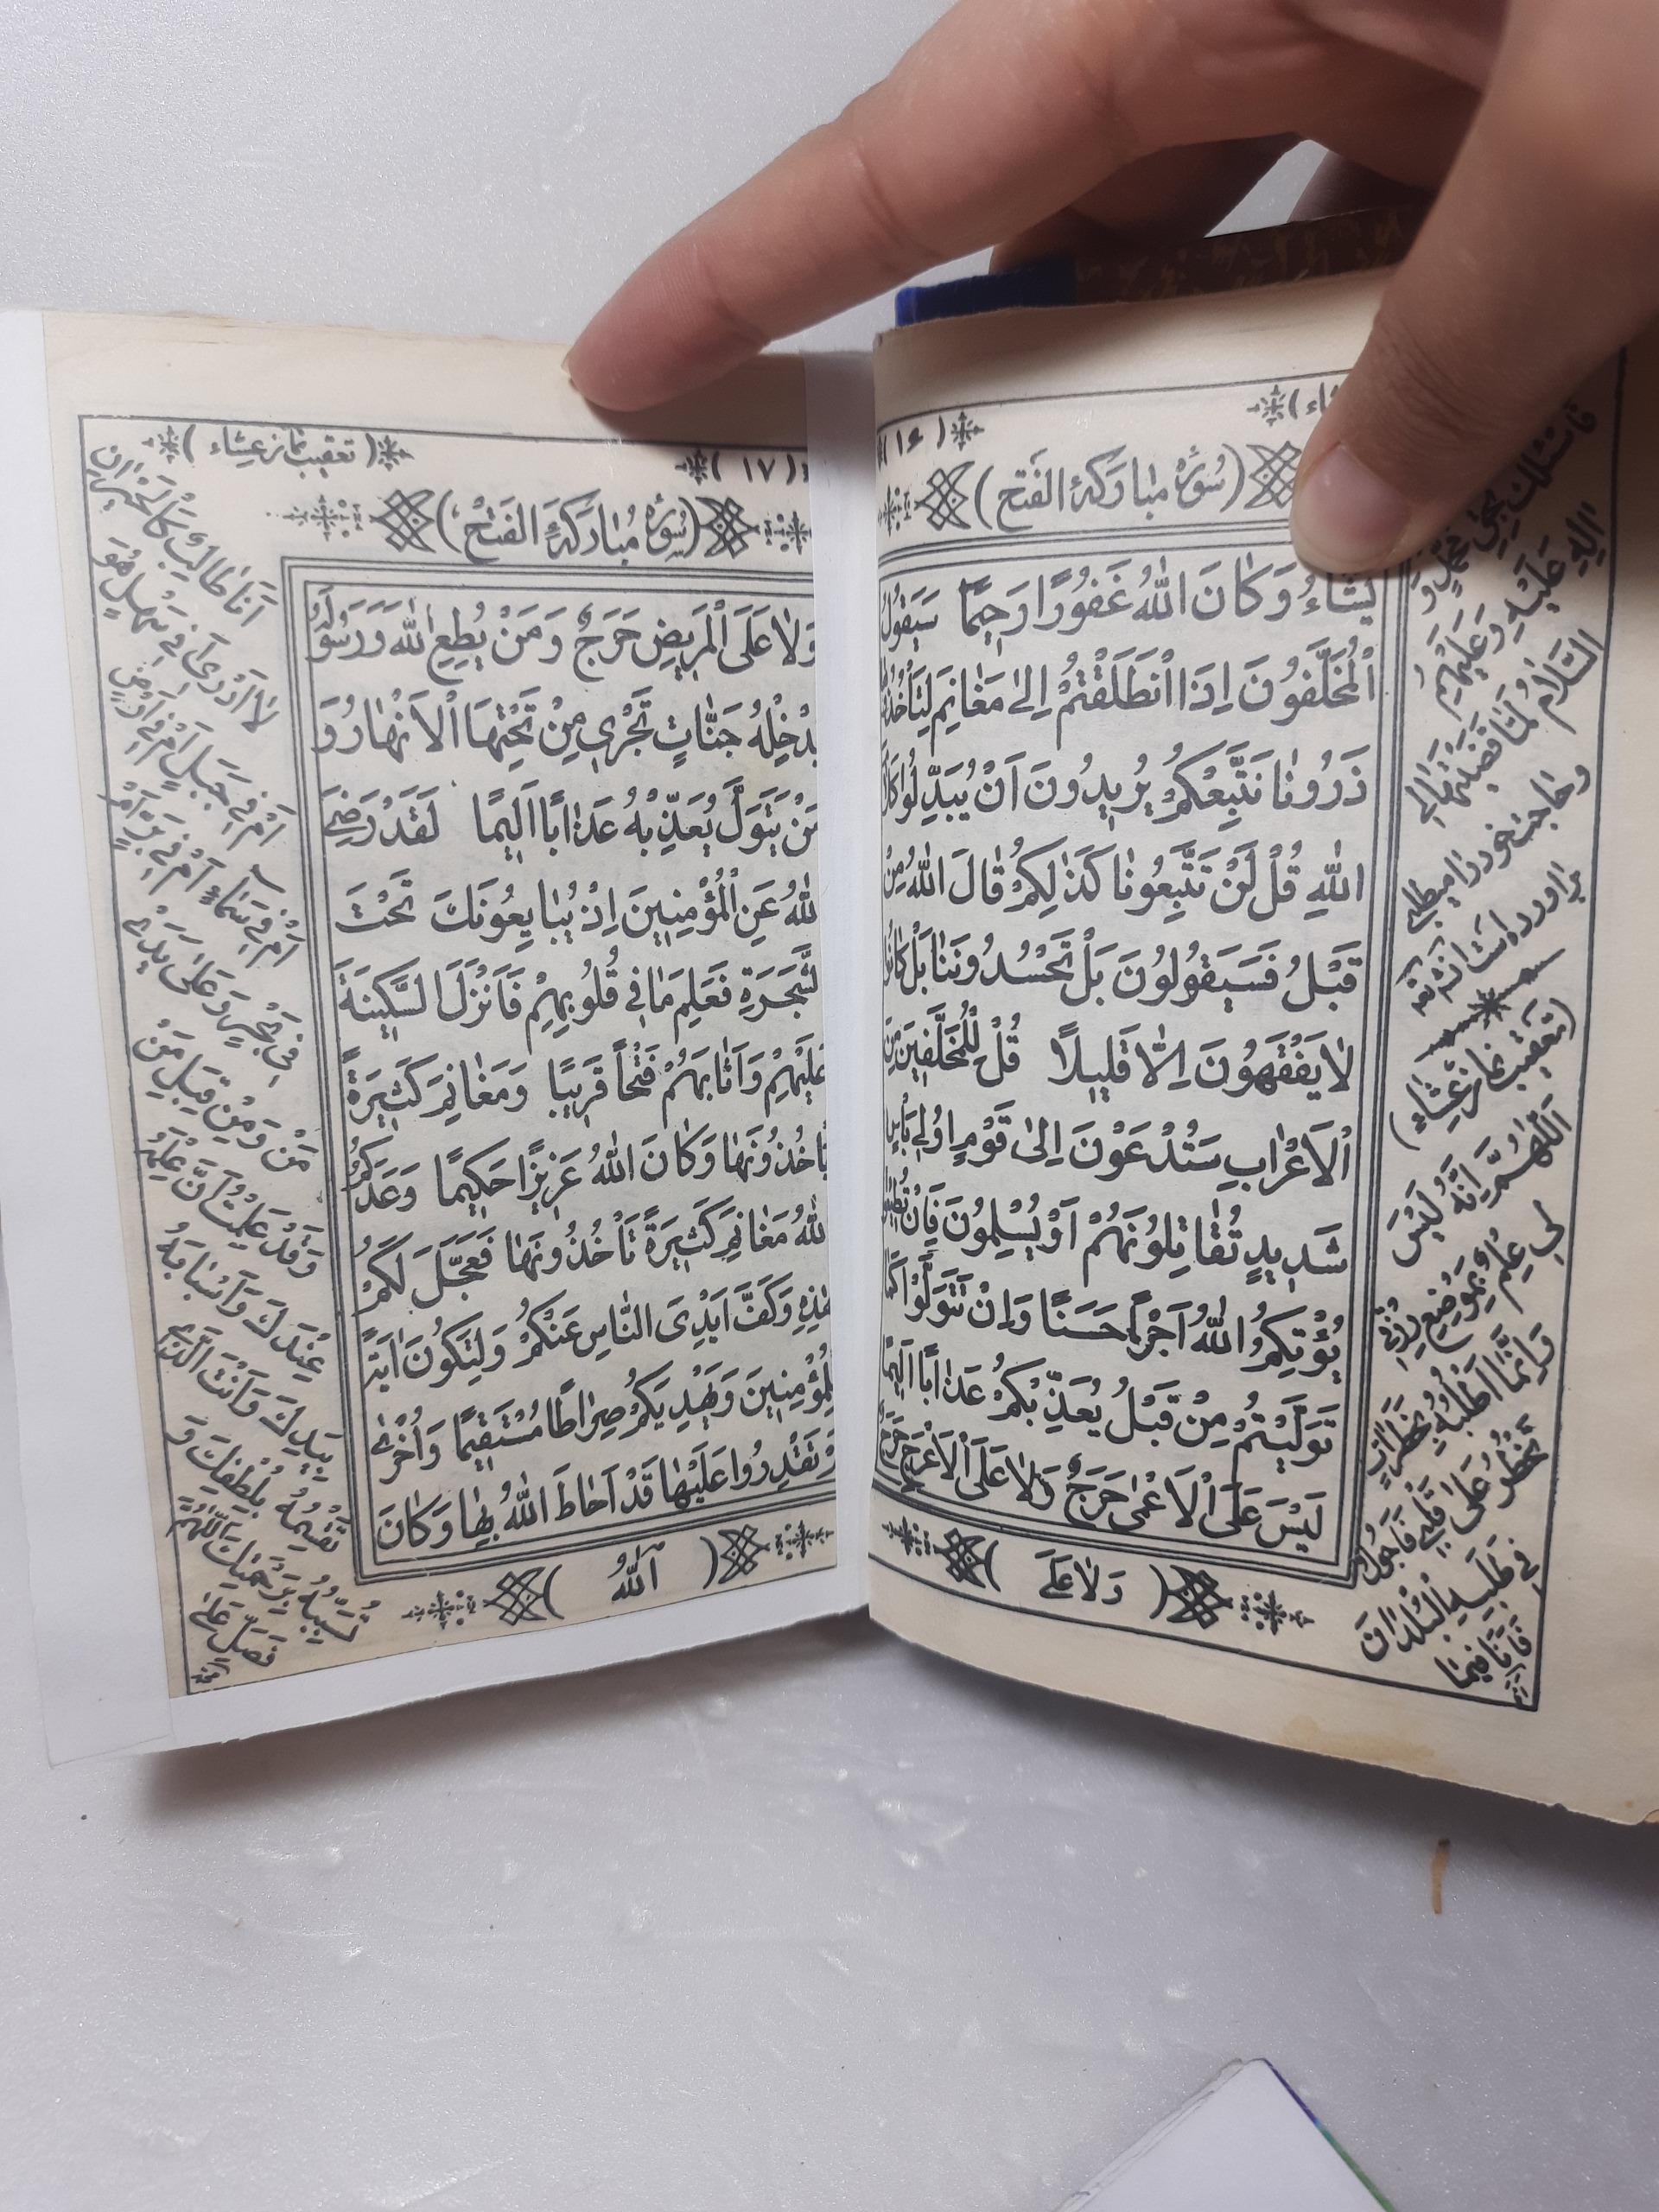 (سُورَةُ مُبَارَكَةُ الفَتْحِ)
يَشَاءُ وَكَانَ اللَّهُ غَفُورًا رَحِيمًا سَيَقُولُ
الْمُخَلَّفُونَ إِذَا انْطَلَقْتُمْ إِلَى مَغَانِمَ لِتَأْخُذُوهَا
ذَرُونَا نَتَّبِعْكُمْ يُرِيدُونَ أَنْ يُبَدِّلُوا كَلَامَ
اللَّهِ قُلْ لَنْ تَتَّبِعُونَا كَذَلِكُمْ قَالَ اللَّهُ مِنْ
قَبْلُ فَسَيَقُولُونَ بَلْ تَحْسُدُونَنَا بَلْ كَانُوا
لَا يَفْقَهُونَ إِلَّا قَلِيلًا قُلْ لِلْمُخَلَّفِينَ مِنَ
الْأَعْرَابِ سَتُدْعَوْنَ إِلَى قَوْمٍ أُولِي بَأْسٍ
شَدِيدٍ تُقَاتِلُونَهُمْ أَوْ يُسْلِمُونَ فَإِنْ تُطِيعُوا
يُؤْتِكُمُ اللَّهُ أَجْرًا حَسَنًا وَإِنْ تَتَوَلَّوْا كَمَا
تَوَلَّيْتُمْ مِنْ قَبْلُ يُعَذِّبْكُمْ عَذَابًا أَلِيمًا
لَيْسَ عَلَى الْأَعْمَى حَرَجٌ وَلَا عَلَى الْأَعْرَجِ حَرَجٌ
(وَلَا عَلَى)
اللهِ عَلَيْهِ وَعَلَيْهِمُ
السَّلَامُ لَمَّا قَضَيْتَهَا لِي
وحاجت خود را میطلبی
برآورده است انشاءالله
(تعقیب نماز عشاء)
اَللّٰهُمَّ اِنَّهُ لَيْسَ
لِي عِلْمٌ بِمَوْضِعِ رِزْقِي
وَاِنَّمَا اَطْلُبُهُ بِخَطَرَاتٍ
تَخْطُرُ عَلَى قَلْبِي فَاَجُولُ
فِي طَلَبِهِ الْبُلْدَانَ
فَاَنَا فِيمَا
(تعقیب نماز عشاء)
(١٧)
(سُورَةُ مُبَارَكَةُ الفَتْحِ)
وَلَا عَلَى الْمَرِيضِ حَرَجٌ وَمَنْ يُطِعِ اللَّهَ وَرَسُولَهُ
يُدْخِلْهُ جَنَّاتٍ تَجْرِي مِنْ تَحْتِهَا الْأَنْهَارُ وَ
مَنْ يَتَوَلَّ يُعَذِّبْهُ عَذَابًا أَلِيمًا لَقَدْ رَضِيَ
اللَّهُ عَنِ الْمُؤْمِنِينَ إِذْ يُبَايِعُونَكَ تَحْتَ
الشَّجَرَةِ فَعَلِمَ مَا فِي قُلُوبِهِمْ فَأَنْزَلَ السَّكِينَةَ
عَلَيْهِمْ وَأَثَابَهُمْ فَتْحًا قَرِيبًا وَمَغَانِمَ كَثِيرَةً
يَأْخُذُونَهَا وَكَانَ اللَّهُ عَزِيزًا حَكِيمًا وَعَدَكُمُ
اللَّهُ مَغَانِمَ كَثِيرَةً تَأْخُذُونَهَا فَعَجَّلَ لَكُمْ
هَذِهِ وَكَفَّ أَيْدِيَ النَّاسِ عَنْكُمْ وَلِتَكُونَ آيَةً
لِلْمُؤْمِنِينَ وَيَهْدِيَكُمْ صِرَاطًا مُسْتَقِيمًا وَأُخْرَى
لَمْ تَقْدِرُوا عَلَيْهَا قَدْ أَحَاطَ اللَّهُ بِهَا وَكَانَ
(اَللّٰهُ)
اَنَا طَالِبٌ كَالْحَيْرَانِ
لَا اَدْرِي اَفِي سَهْلٍ هُوَ
اَمْ فِي جَبَلٍ اَمْ فِي اَرْضٍ
اَمْ فِي سَمَاءٍ اَمْ فِي بَرٍّ اَمْ
فِي بَحْرٍ وَعَلَى يَدَيْ
مَنْ وَمِنْ قِبَلِ مَنْ
وَقَدْ عَلِمْتُ اَنَّ عِلْمَهُ
عِنْدَكَ وَاَسْبَابَهُ
بِيَدِكَ وَاَنْتَ الَّذِي
تَقْسِمُهُ بِلُطْفِكَ وَ
تُسَبِّبُهُ بِرَحْمَتِكَ اَللّٰهُمَّ
فَصَلِّ عَلَى